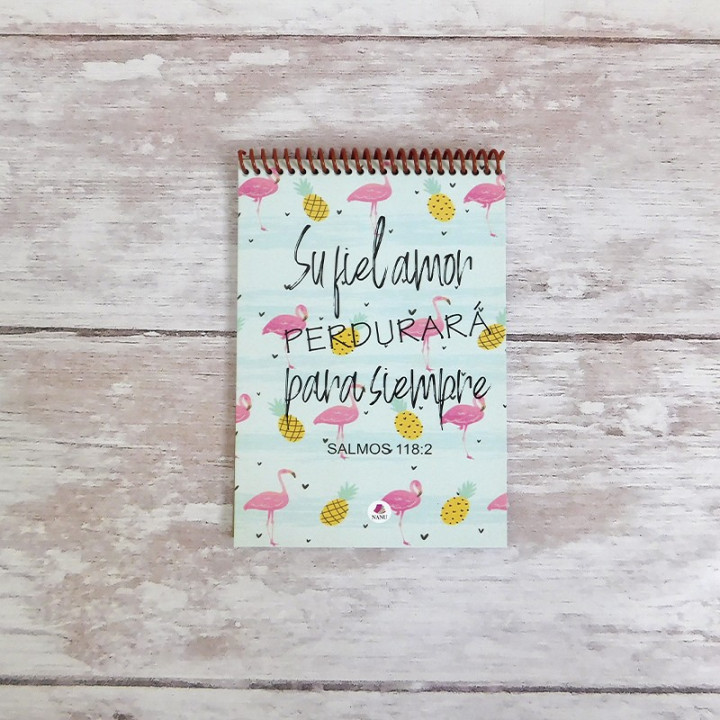 Su fiel amor
PERDURARÁ
para siempre
SALMOS 118:2
NANU